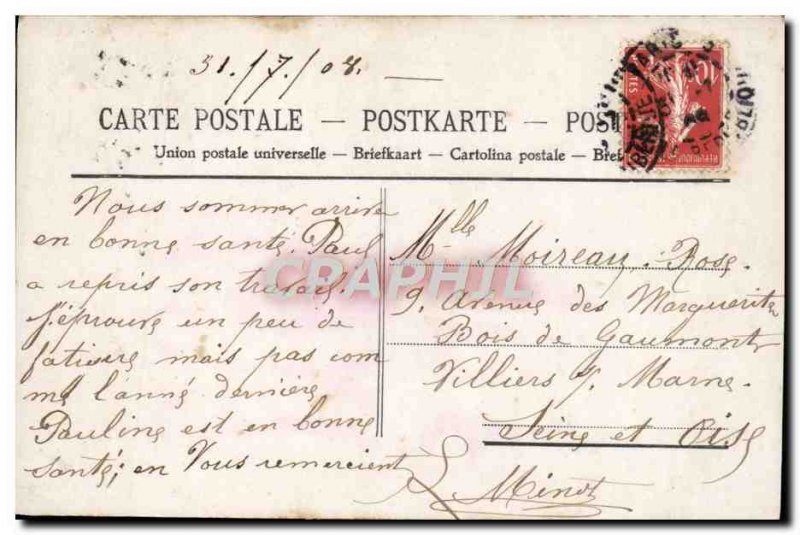 31/7/08. —
CARTE POSTALE — POSTKARTE — POST
Union postale universelle — Briefkaart — Cartolina postale — Bre
Nous sommer arrive
en bonne santé. Paul
a repris son travail.
J'éprouve un peu de
fatigue mais pas com
me l'anné dernière
Pauline est en bonne
santé; en Vous remercient
Mlle Moireau. Rose.
9. Avenue des Marguerites
Bois de Gaumont
Villiers s/ Marne.
Seine et Oise
Minot
10
CRAPHIL